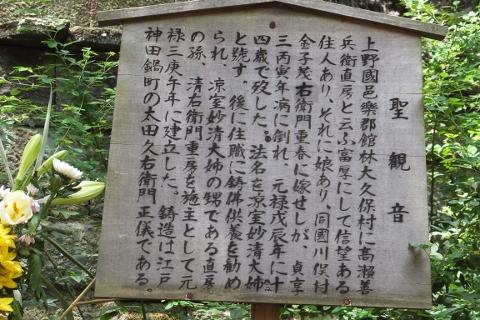 聖観音
上野國邑樂郡館林大久保村に高瀬善
兵衛直房と云ふ富厚にして信望ある
住人あり、それに娘あり、同國川俣村
金子茂右衛門重春に嫁せしが、貞享
三丙寅年病に倒れ、元禄戊辰年に十
四歳で歿した。法名を凉室妙清大姉
と號す。後に住職に鋳佛供養を勧め
られ、凉室妙清大姉の甥である直房
の孫、清右衛門重房を施主として元
禄三庚午年に建立した。鋳造は江戸
神田鍋町の太田久右衛門正儀である。